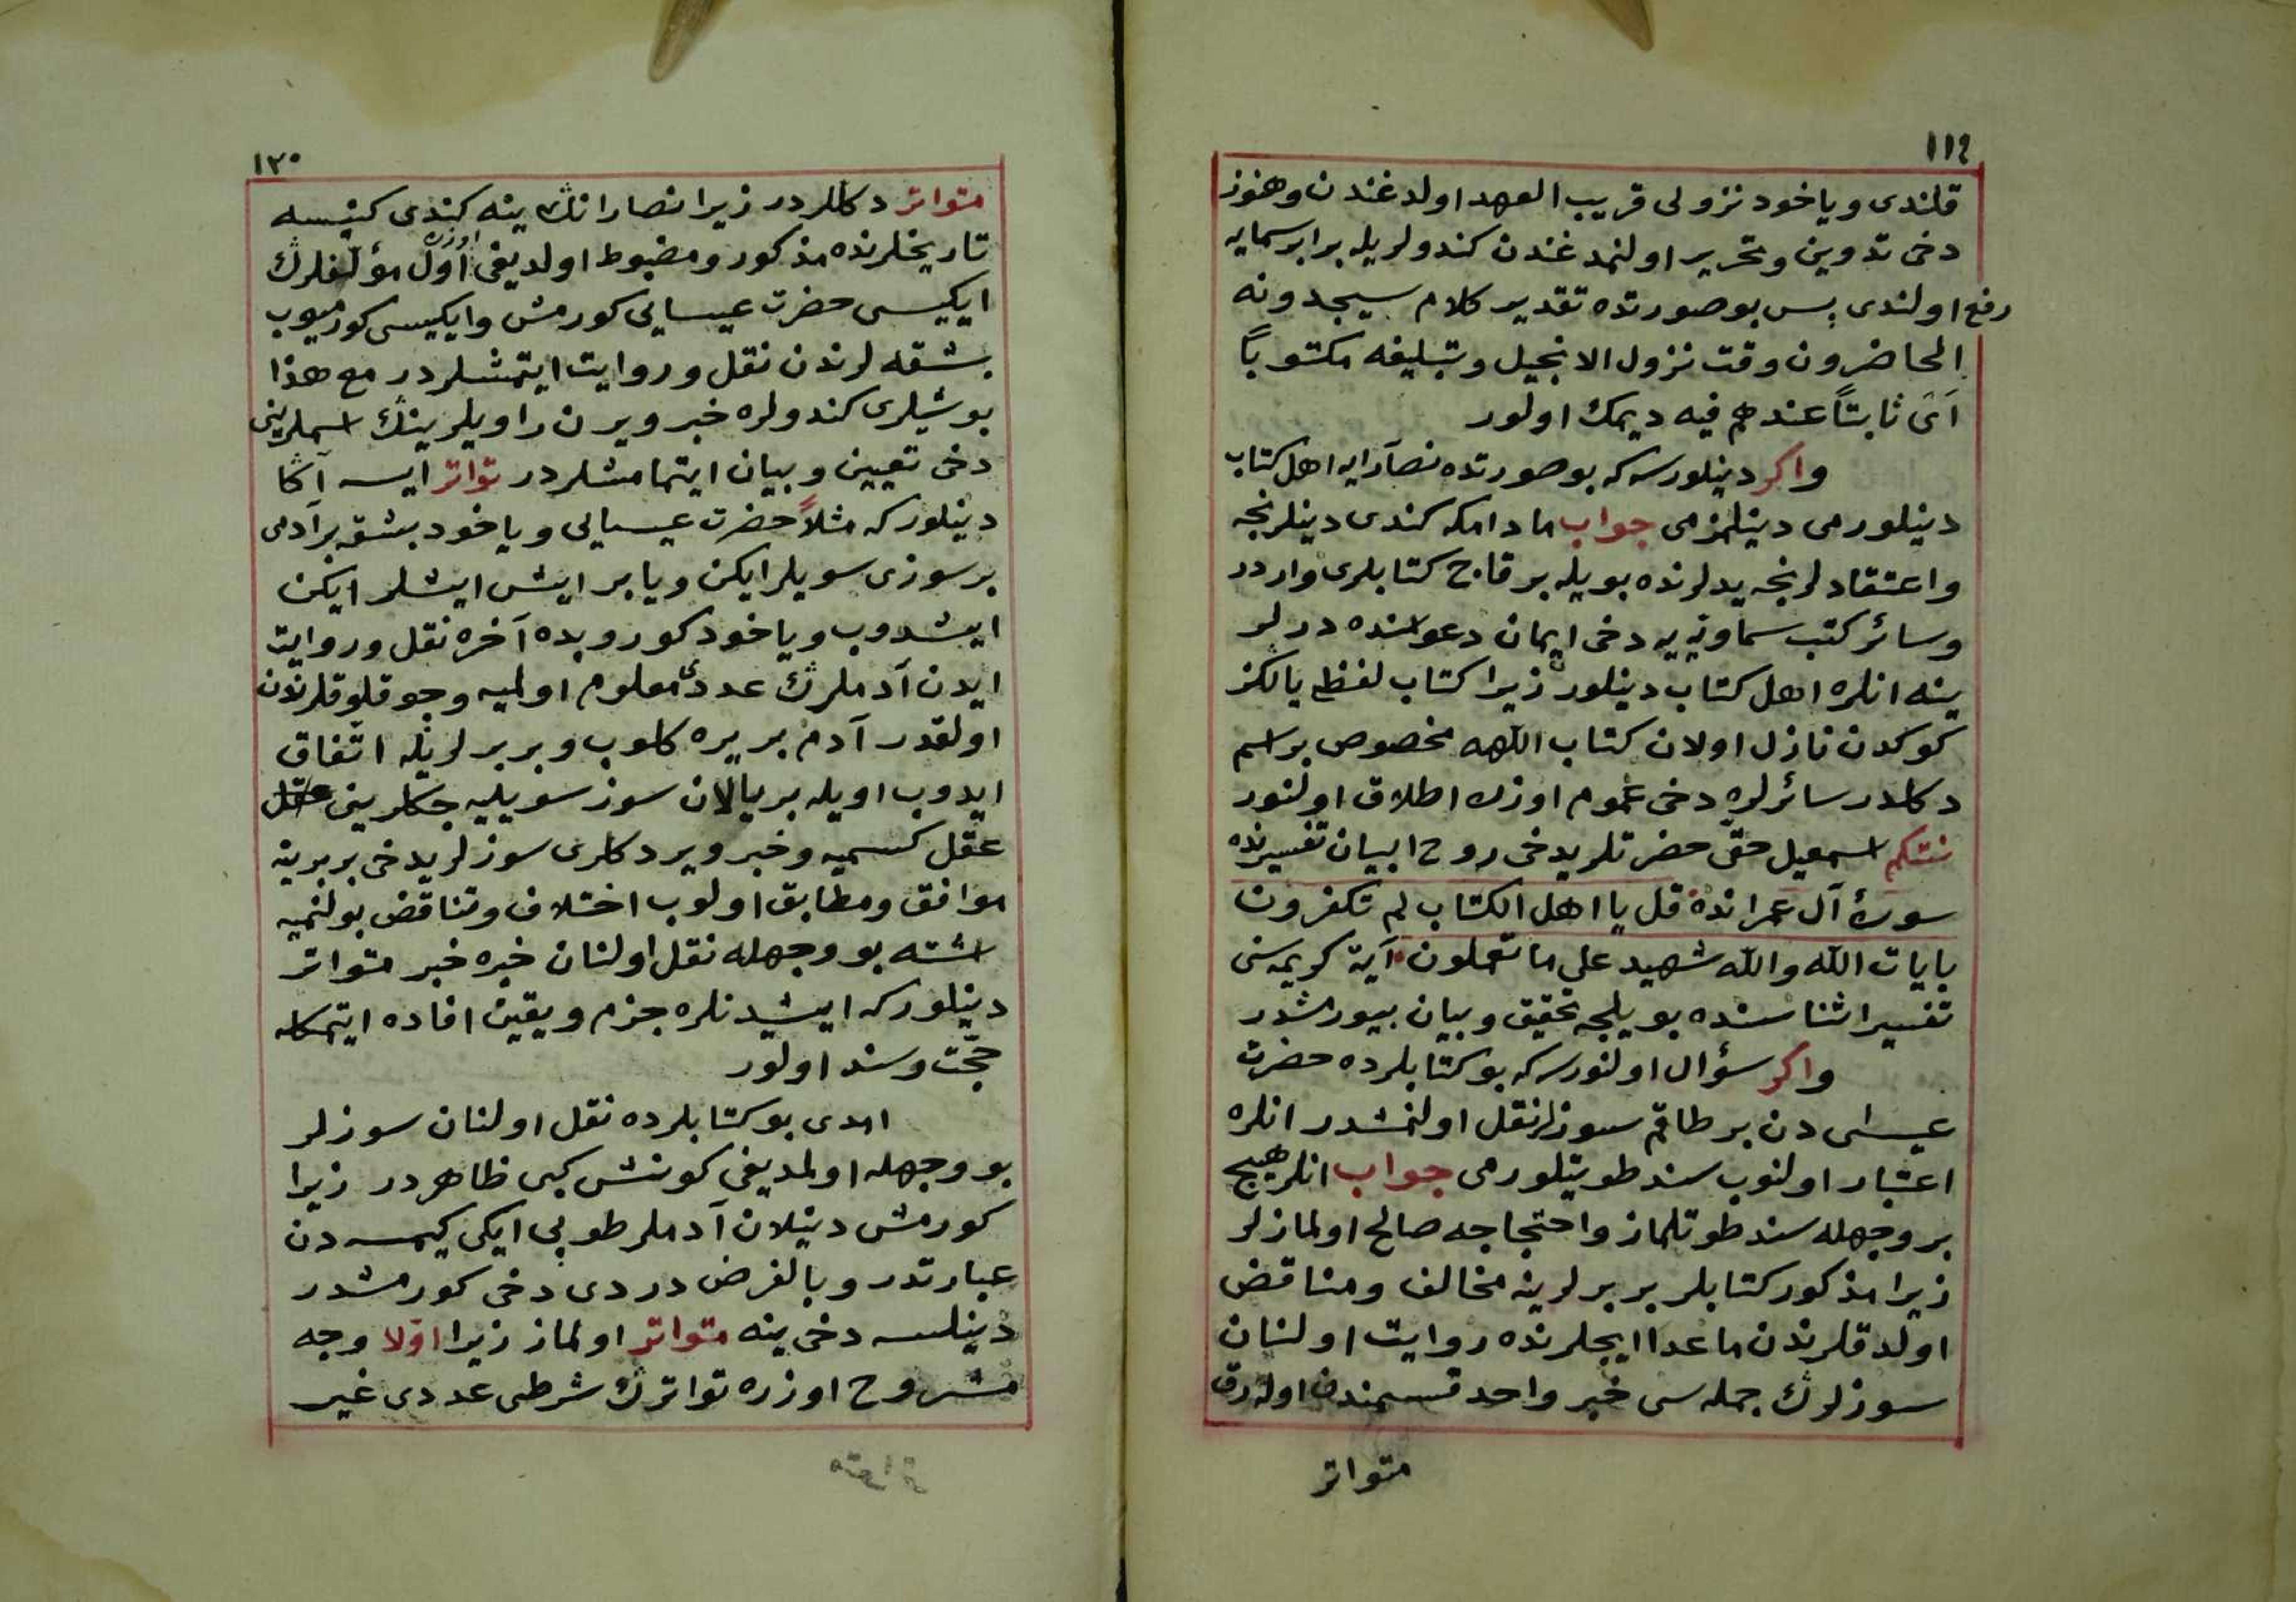 ١١٩
قلندى ويا خود نزولى قريب العهد اولدغندن وهنوز
دخى تدوين وتحرير اولنمدغندن كندولريله برابر سمايه
رفع اولندى پس بو صورتده تقدير كلام سيجدونه
الحاضرون وقت نزول الانجيل وتبليغه مكتوباً
اَىْ ثابتاً عندهم فيه ديمك اولور
واكر دينلورسه كه بو صورتده نصارايه اهل كتاب
دينلورمى دينلمزمى جواب مادامكه كندى دينلرنجه
واعتقادلرنجه يدلرنده بويله بر قاج كتابلرى واردر
وسائر كتب سماويه يه دخى ايمان دعواسنده درلر
ينه انلره اهل كتاب دينلور زيرا كتاب لفظى يالكز
كوكدن نازل اولان كتاب اللهه مخصوص بر اسم
دكلدر سائرلره دخى عموم اوزره اطلاق اولنور
نتكم اسمعيل حقى حضرتلريدخى روح البيان تفسيرنده
سورۀ آل عمرانده قل يا اهل الكتاب لم تكفرون
بايات الله والله شهيد على ما تعملون آية كريمه سنى
تفسير اثناسنده بويلجه تحقيق وبيان بيورمشدر
واكر سؤال اولنورسه كه بو كتابلرده حضرت
عيسى دن بر طاقم سوزلر نقل اولنمشدر انلره
اعتبار اولنوب سند طوتيلورمى جواب انلر هيچ
بر وجهله سند طوتلماز واحتجاجه صالح اولمازلر
زيرا مذكور كتابلر بربرلرينه مخالف ومناقض
اولدقلرندن ماعدا ايچلرنده روايت اولنان
سوزلرك جمله سى خبر واحد قسمندن اولەرق
متواتر
١٢٠
متواتر دكللردر زيرا نصارانك ينه كندى كنيسه
تاريخلرنده مذكور ومضبوط اولديغى اوزره اول مؤلفلرك
ايكيسى حضرت عيسايى كورمش وايكيسى كورميوب
بشقه لرندن نقل وروايت ايتمشلردر مع هذا
بو شيلرى كندولره خبر ويرن راويلرينك اسملرينى
دخى تعيين وبيان ايتمامشلردر تواتر ايسه آكا
دينلور كه مثلاً حضرت عيسايى ويا خود بشقه بر آدمى
بر سوزى سويلر ايكن ويا بر ايش ايشلر ايكن
ايشدوب ويا خود كوروبده آخره نقل وروايت
ايدن آدملرك عددى معلوم اولميه وجوقلوقلرندن
اولقدر آدم بر يره كلوب وبربرلريله اتفاق
ايدوب اويله بر يالان سوز سويليه جكلرينى عقل
عقل كسميه وخبر ويردكلرى سوزلريدخى بربرينه
موافق ومطابق اولوب اختلاف وتناقض بولنميه
اشته بو وجهله نقل اولنان خبره خبر متواتر
دينلور كه ايشيدنلره جزم ويقين افاده ايتمكله
حجت وسند اولور
امدى بو كتابلرده نقل اولنان سوزلر
بو وجهله اولمديغى كونش كبى ظاهردر زيرا
كورمش دينلان آدملر طوپى ايكى كيمسه دن
عبارتدر وبالفرض دردى دخى كورمشدر
دينلسه دخى ينه متواتر اولماز زيرا اولا وجه
مشروح اوزره تواترك شرطى عددى غير